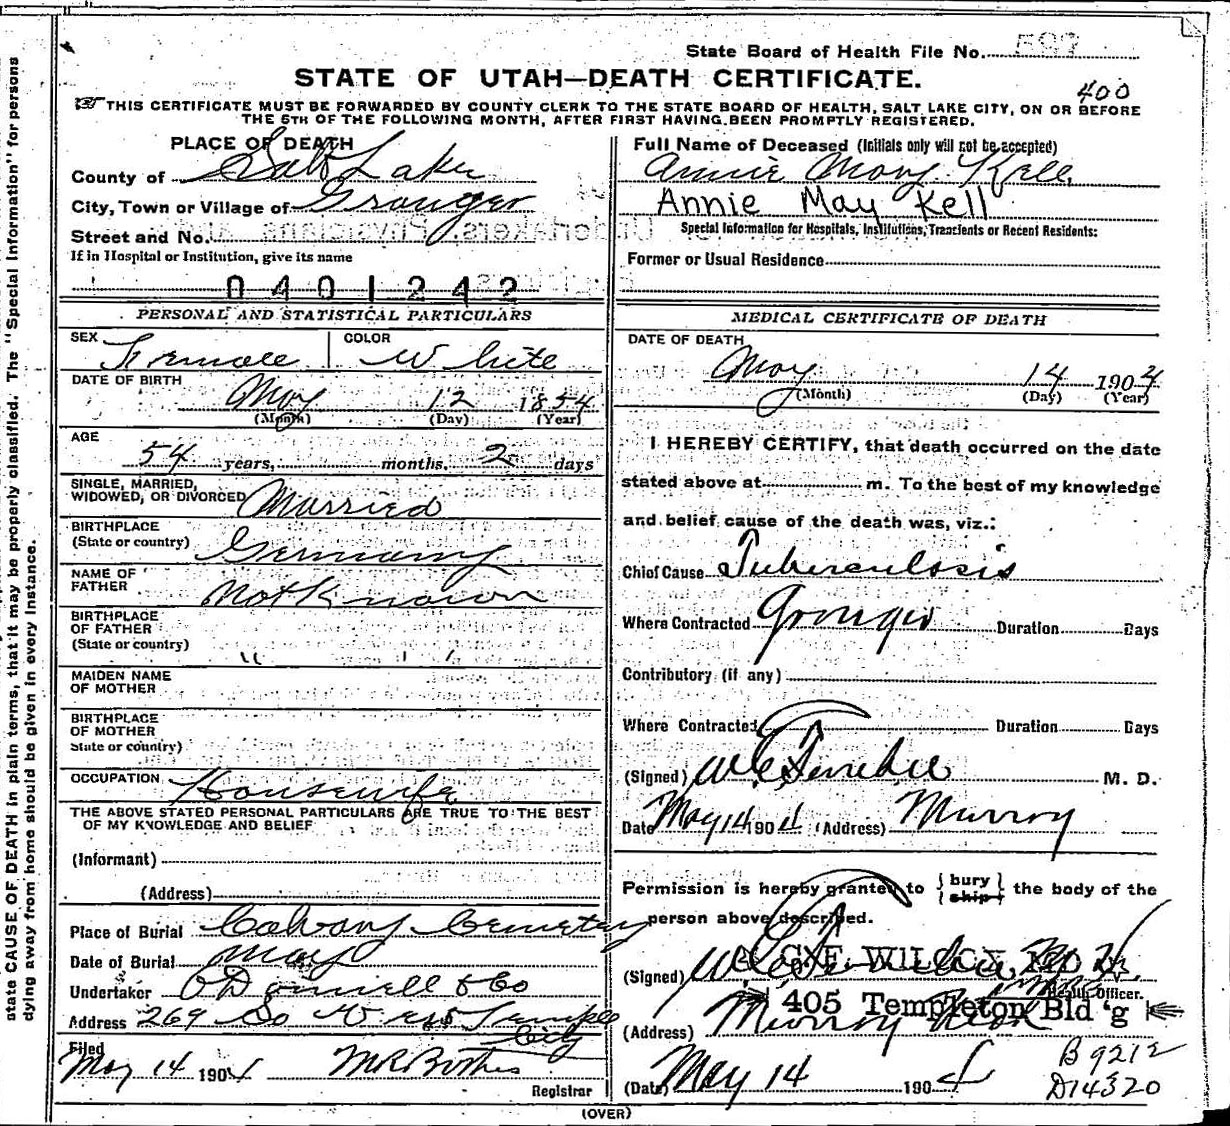 State Board of Health File No. 597
STATE OF UTAH—DEATH CERTIFICATE.
400
THIS CERTIFICATE MUST BE FORWARDED BY COUNTY CLERK TO THE STATE BOARD OF HEALTH, SALT LAKE CITY, ON OR BEFORE
THE 5TH OF THE FOLLOWING MONTH, AFTER FIRST HAVING BEEN PROMPTLY REGISTERED.
state CAUSE OF DEATH in plain terms, that it may be properly classified. The "Special Information" for persons
dying away from home should be given in every instance.
PLACE OF DEATH
County of Salt Lake
City, Town or Village of Granger
Street and No.
If in Hospital or Institution, give its name
0401242
PERSONAL AND STATISTICAL PARTICULARS
SEX Female COLOR White
DATE OF BIRTH May 12 1854
(Month) (Day) (Year)
AGE
54 years, months, 2 days
SINGLE, MARRIED,
WIDOWED, OR DIVORCED Married
BIRTHPLACE
(State or country) Germany
NAME OF
FATHER Not Known
BIRTHPLACE
OF FATHER
(State or country) " "
MAIDEN NAME
OF MOTHER
BIRTHPLACE
OF MOTHER
State or country)
OCCUPATION Housewife
THE ABOVE STATED PERSONAL PARTICULARS ARE TRUE TO THE BEST
OF MY KNOWLEDGE AND BELIEF
(Informant)
(Address)
Place of Burial Calvary Cemetery
Date of Burial May
Undertaker O'Donnell & Co
Address 269 So West Temple
City
Filed
May 14 1904
Registrar
Full Name of Deceased (Initials only will not be accepted)
Annie May Kell
Annie May Kell
Special Information for Hospitals, Institutions, Transients or Recent Residents:
Former or Usual Residence
MEDICAL CERTIFICATE OF DEATH
DATE OF DEATH
May 14 1904
(Month) (Day) (Year)
I HEREBY CERTIFY, that death occurred on the date
stated above at m. To the best of my knowledge
and belief cause of the death was, viz.:
Chief Cause Tuberculosis
Where Contracted Granger Duration Days
Contributory (if any)
Where Contracted Duration Days
(Signed) M. D.
Date May 14 1904 (Address) Murray
Permission is hereby granted to { bury ship } the body of the
person above described.
(Signed) C. F. WILCOX, M. D.
Health Officer.
405 Templeton Bld'g
(Address) Murray Utah
(Date) May 14 1904
B 9212
D14320
(OVER)